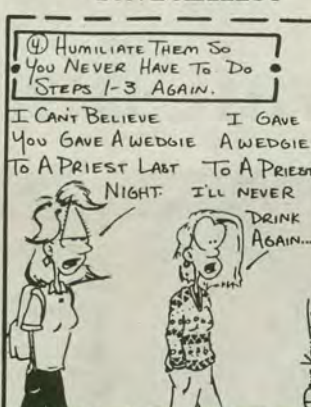 ④ HUMILIATE THEM SO
YOU NEVER HAVE TO DO
STEPS 1-3 AGAIN.
I CAN'T BELIEVE
YOU GAVE A WEDGIE
TO A PRIEST LAST
NIGHT.
I GAVE
A WEDGIE
TO A PRIEST
I'LL NEVER
DRINK
AGAIN...